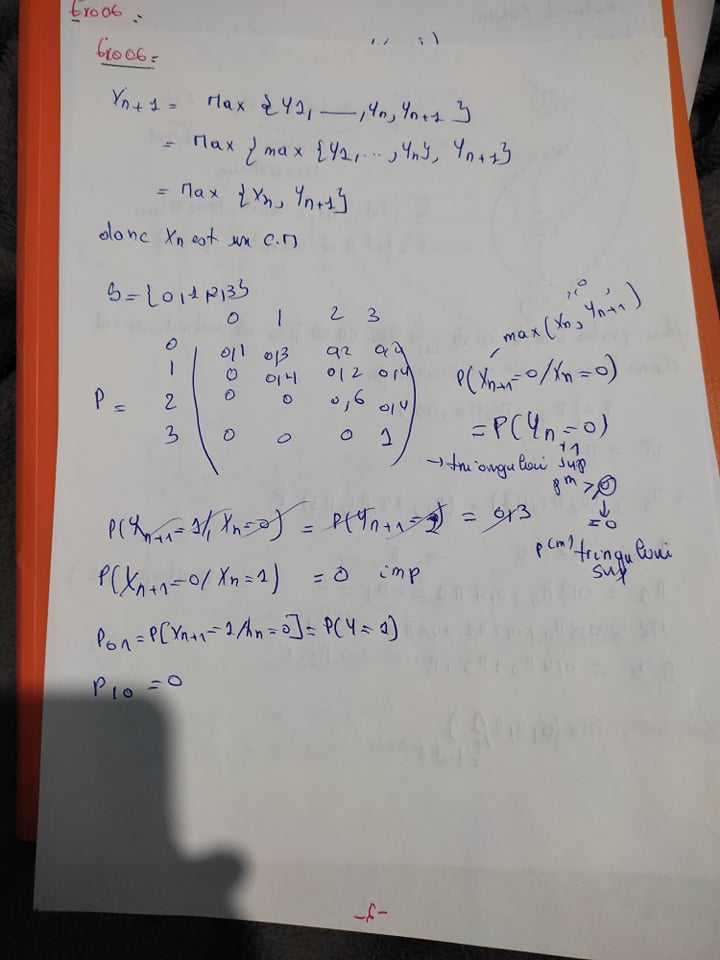 Exo06 :
Exo06 =
Xn+1 = Max {Y1, —, Yn, Yn+1}
= Max {max {Y1, ..., Yn}, Yn+1}
= Max {Xn, Yn+1}
donc Xn est un C.M
S = {0,1,2,3}
0 1 2 3
0 0,1 0,3 0,2 0,4
1 0 0,4 0,2 0,4
P = 2 0 0 0,6 0,4
3 0 0 0 1
max(Xn, Yn+1)
P(Xn+1=0/Xn=0)
= P(Yn+1=0)
→ triangulaire sup
P(Xn+1=1/Xn=0) = P(Yn+1=1) = 0,3
= 0
P(m) triangulaire sup
P(Xn+1=0/Xn=1) = 0 imp
P01 = P[Xn+1=1/Xn=0] = P(Y=1)
P10 = 0